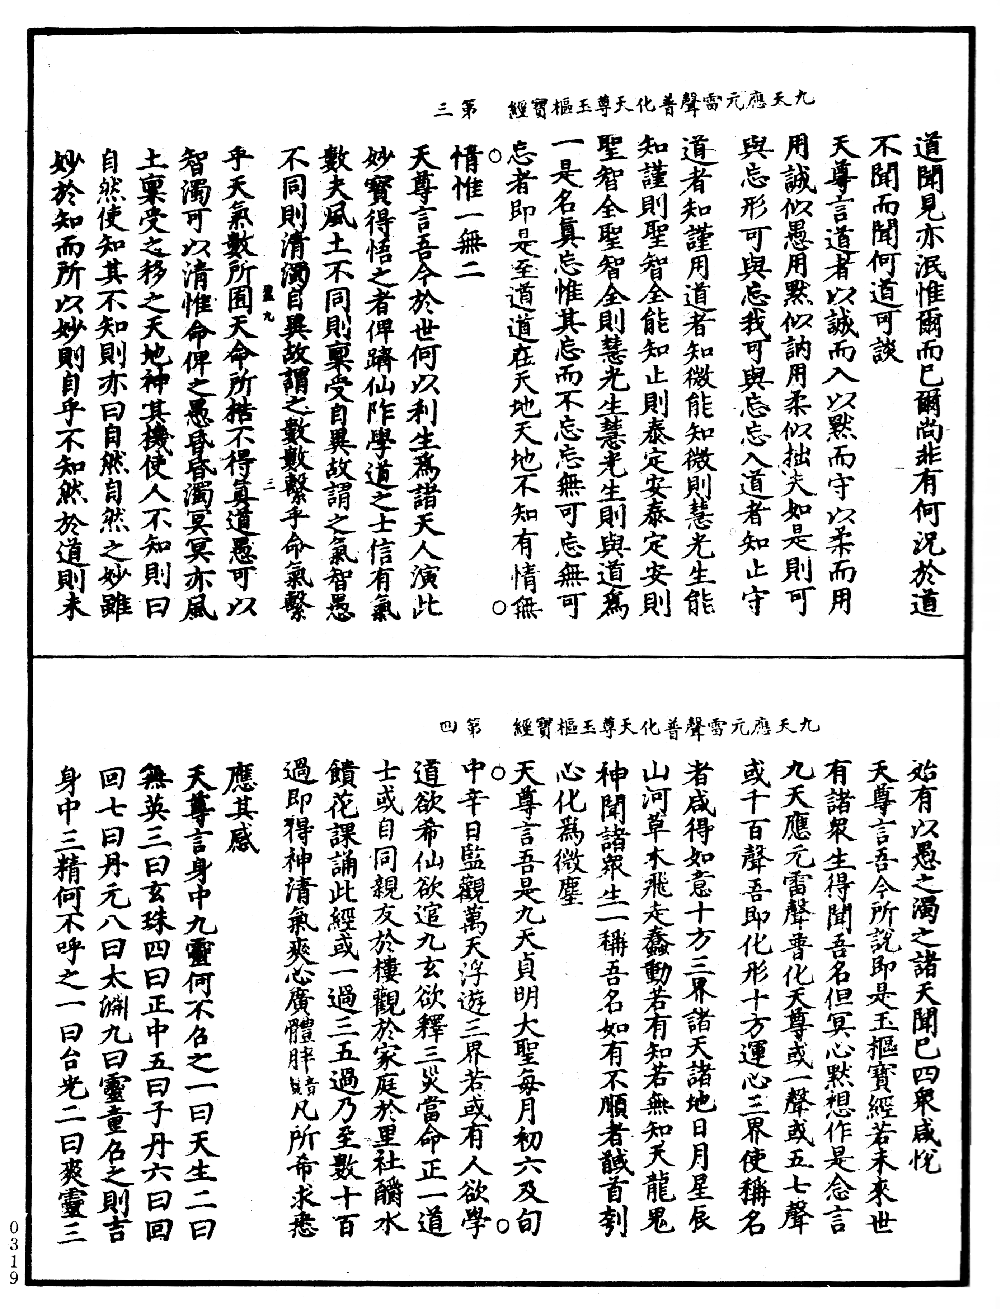 九天應元雷聲普化天尊玉樞寶經　第三
道聞見亦泯惟爾而已爾尚非有何況於道
不聞而聞何道可談
天尊言道者以誠而入以默而守以柔而用
用誠似愚用默似訥用柔似拙夫如是則可
與忘形可與忘我可與忘忘入道者知止守
道者知謹用道者知微能知微則慧光生能
知謹則聖智全能知止則泰定安泰定安則
聖智全聖智全則慧光生慧光生則與道爲
一是名真忘惟其忘而不忘忘無可忘無可
忘者即是至道道在天地天地不知有情無
情惟一無二
天尊言吾今於世何以利生爲諸天人演此
妙寶得悟之者俾躋仙阼學道之士信有氣
數夫風土不同則稟受自異故謂之氣智愚
不同則清濁自異故謂之數數繫乎命氣繫
盈九　三
乎天氣數所囿天命所梏不得真道愚可以
智濁可以清惟命俾之愚昏昏濁冥冥亦風
土稟受之移之天地神其機使人不知則曰
自然使知其不知則亦曰自然自然之妙雖
妙於知而所以妙則自乎不知然於道則未
九天應元雷聲普化天尊玉樞寶經　第四
始有以愚之濁之諸天聞已四衆咸悅
天尊言吾今所說即是玉樞寶經若未來世
有諸衆生得聞吾名但冥心默想作是念言
九天應元雷聲普化天尊或一聲或五七聲
或千百聲吾即化形十方運心三界使稱名
者咸得如意十方三界諸天諸地日月星辰
山河草木飛走蠢動若有知若無知天龍鬼
神聞諸衆生一稱吾名如有不順者馘首刳
心化爲微塵
天尊言吾是九天貞明大聖每月初六及旬
中辛日監觀萬天浮遊三界若或有人欲學
道欲希仙欲逭九玄欲釋三災當命正一道
士或自同親友於樓觀於家庭於里社酹水
饋花課誦此經或一過三五過乃至數十百
過即得神清氣爽心廣體胖凡所希求悉
應其感
天尊言身中九靈何不召之一曰天生二曰
無英三曰玄珠四曰正中五曰子丹六曰回
回七曰丹元八曰太淵九曰靈童召之則吉
身中三精何不呼之一曰台光二曰爽靈三
0319